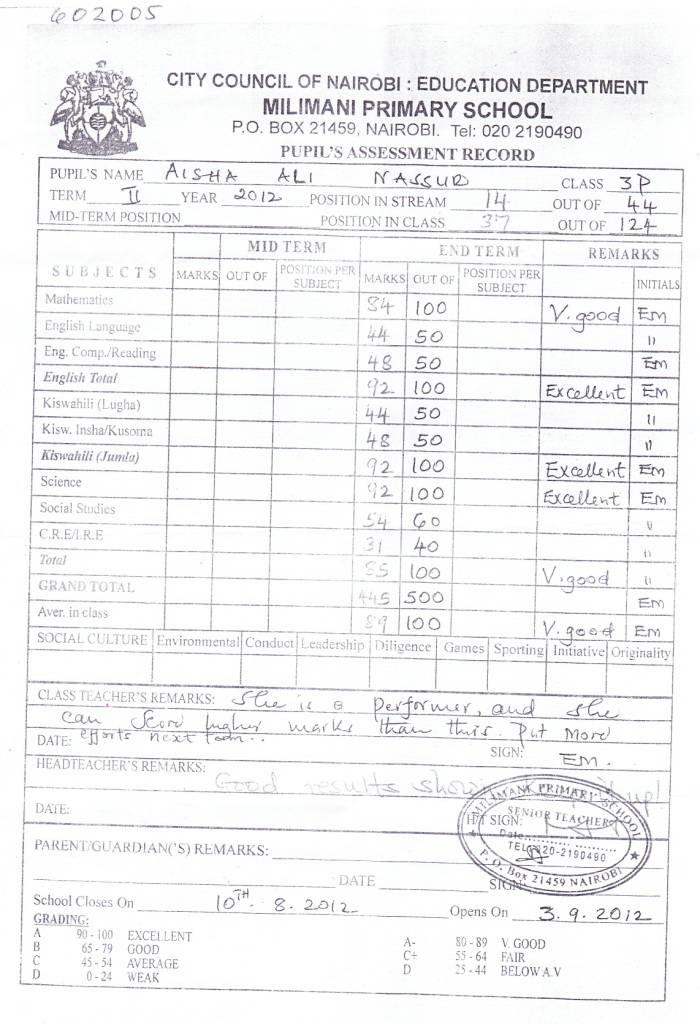 602005
CITY COUNCIL OF NAIROBI : EDUCATION DEPARTMENT
MILIMANI PRIMARY SCHOOL
P.O. BOX 21459, NAIROBI. Tel: 020 2190490
PUPIL'S ASSESSMENT RECORD
PUPIL'S NAME AISHA ALI NASSUR CLASS 3P
TERM II YEAR 2012 POSITION IN STREAM 14 OUT OF 44
MID-TERM POSITION POSITION IN CLASS 37 OUT OF 124
MID TERM END TERM REMARKS
SUBJECTS MARKS OUT OF POSITION PER SUBJECT MARKS OUT OF POSITION PER SUBJECT INITIALS
Mathematics 84 100 V.good Em
English Language 44 50 "
Eng. Comp./Reading 48 50 Em
English Total 92 100 Excellent Em
Kiswahili (Lugha) 44 50 "
Kisw. Insha/Kusoma 48 50 "
Kiswahili (Jumla) 92 100 Excellent Em
Science 92 100 Excellent Em
Social Studies 54 60 "
C.R.E/I.R.E 31 40 "
Total 85 100 V.good "
GRAND TOTAL 445 500 Em
Aver. in class 89 100 V.good Em
SOCIAL CULTURE Environmental Conduct Leadership Diligence Games Sporting Initiative Originality
CLASS TEACHER'S REMARKS: She is a performer, and she
can score higher marks than this. Put More
DATE: efforts next term.. SIGN: EM.
HEADTEACHER'S REMARKS: Good results up!
DATE: H/T SIGN:
MILIMANI PRIMARY SCHOOL
SENIOR TEACHER
Date
TEL: 020-2190490
P. O. Box 21459 NAIROBI
PARENT/GUARDIAN('S) REMARKS:
DATE SIGN
School Closes On 10TH. 8. 2012 Opens On 3. 9. 2012
GRADING:
A 90 - 100 EXCELLENT A- 80 - 89 V. GOOD
B 65 - 79 GOOD C+ 55 - 64 FAIR
C 45 - 54 AVERAGE D 25 - 44 BELOW A.V
D 0 - 24 WEAK